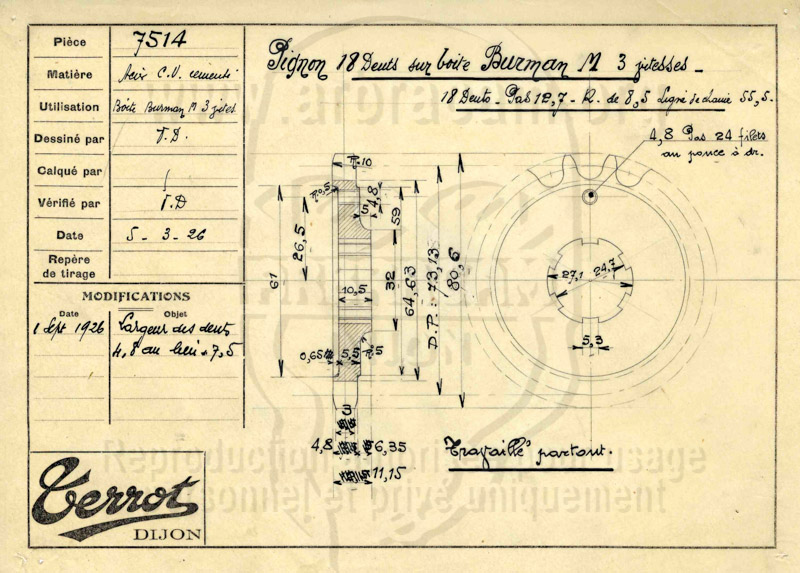 Pièce 7514
Matière Acier C.V. cementé
Utilisation Boite Burman M 3 vitesses
Dessiné par T.D.
Calqué par
Vérifié par T.D
Date 5 - 3 - 26
Repère
de tirage
MODIFICATIONS
Date Objet
1 Sept 1926 Largeur des dents
4,8 au lieu de 7,5
Pignon 18 Dents sur boite Burman M 3 vitesses -
18 Dents - Pas 12,7 - R. de 8,5 Ligne de chaine 55,5.
4,8 Pas 24 filets
au pouce à dr.
R.10
R.0,5
5
4,8
59
26,5
61
10,5
32
64,63
D.P.: 73,13
80,6
27,1
24,7
5,3
0,65
5,5
R.5
3
4,8
6,35
11,15
Travaillé partout.
Terrot
DIJON
Reproduction
usage
personnel et privé uniquement